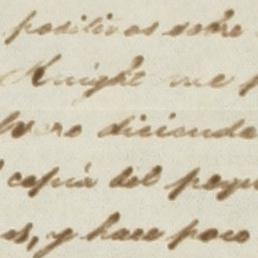 positivos sobre
Knight me
diciendo
copia del
es, y hace poco